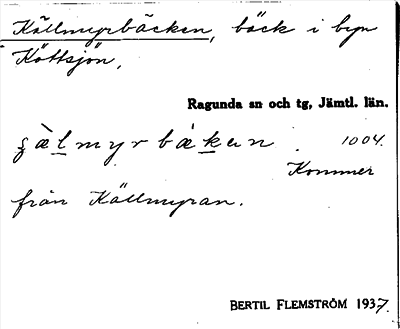 Källmyrbäcken, bäck i byn
Köttsjön.
Ragunda sn och tg, Jämtl. län.
ʂὰlmyrbὰkən . 1004.
Kommer
från Källmyran.
BERTIL FLEMSTRÖM 1937.